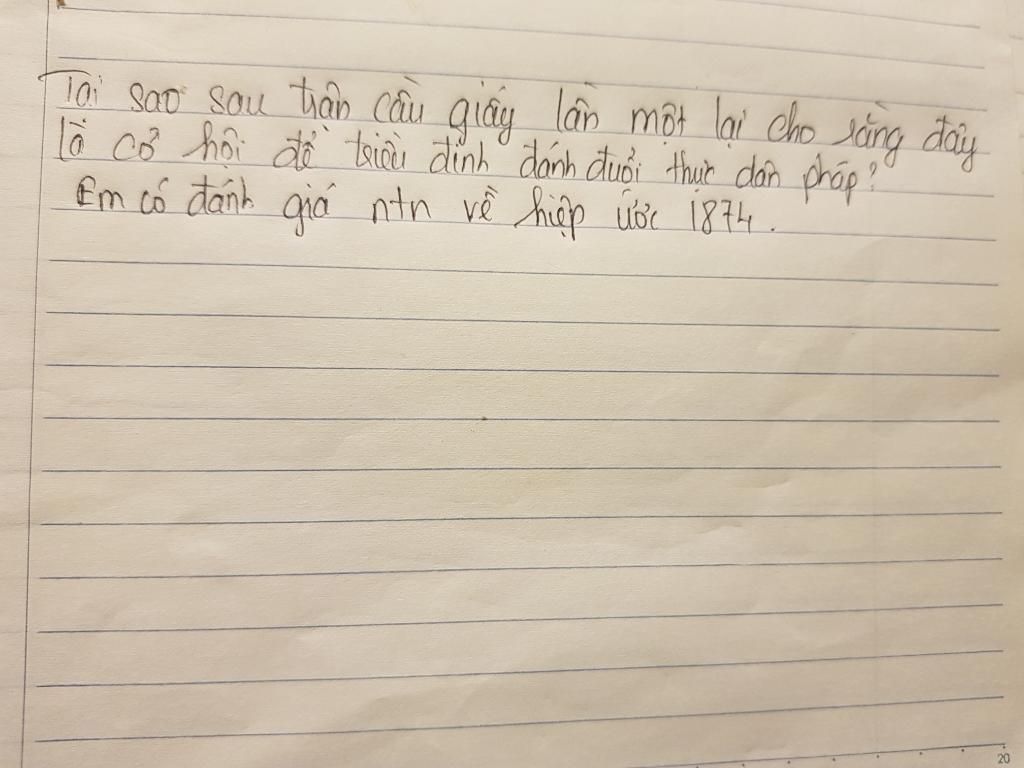 Tại sao sau trận cầu giấy lần một lại cho rằng đây
là cơ hội để triều đình đánh đuổi thực dân pháp?
Em có đánh giá ntn về hiệp ước 1874.
20